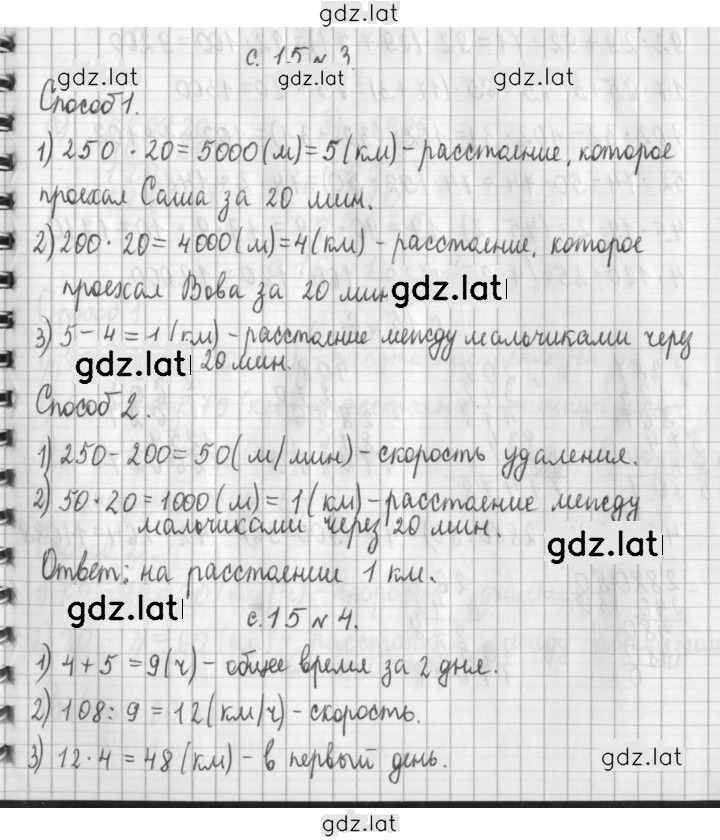 gdz.lat
с. 15 № 3
gdz.lat gdz.lat gdz.lat
Способ 1.
1) 250 · 20 = 5000 (м) = 5 (км) – расстояние, которое
проехал Саша за 20 мин.
2) 200 · 20 = 4000 (м) = 4 (км) – расстояние, которое
проехал Вова за 20 мин
gdz.lat
3) 5 – 4 = 1 (км) – расстояние между мальчиками через
gdz.lat 20 мин.
Способ 2.
1) 250 – 200 = 50 (м/мин) – скорость удаления.
2) 50 · 20 = 1000 (м) = 1 (км) – расстояние между
мальчиками через 20 мин.
gdz.lat
Ответ: на расстоянии 1 км.
gdz.lat с. 15 № 4.
1) 4 + 5 = 9 (ч) – общее время за 2 дня.
2) 108 : 9 = 12 (км/ч) – скорость.
3) 12 · 4 = 48 (км) – в первый день.
gdz.lat
gdz.lat